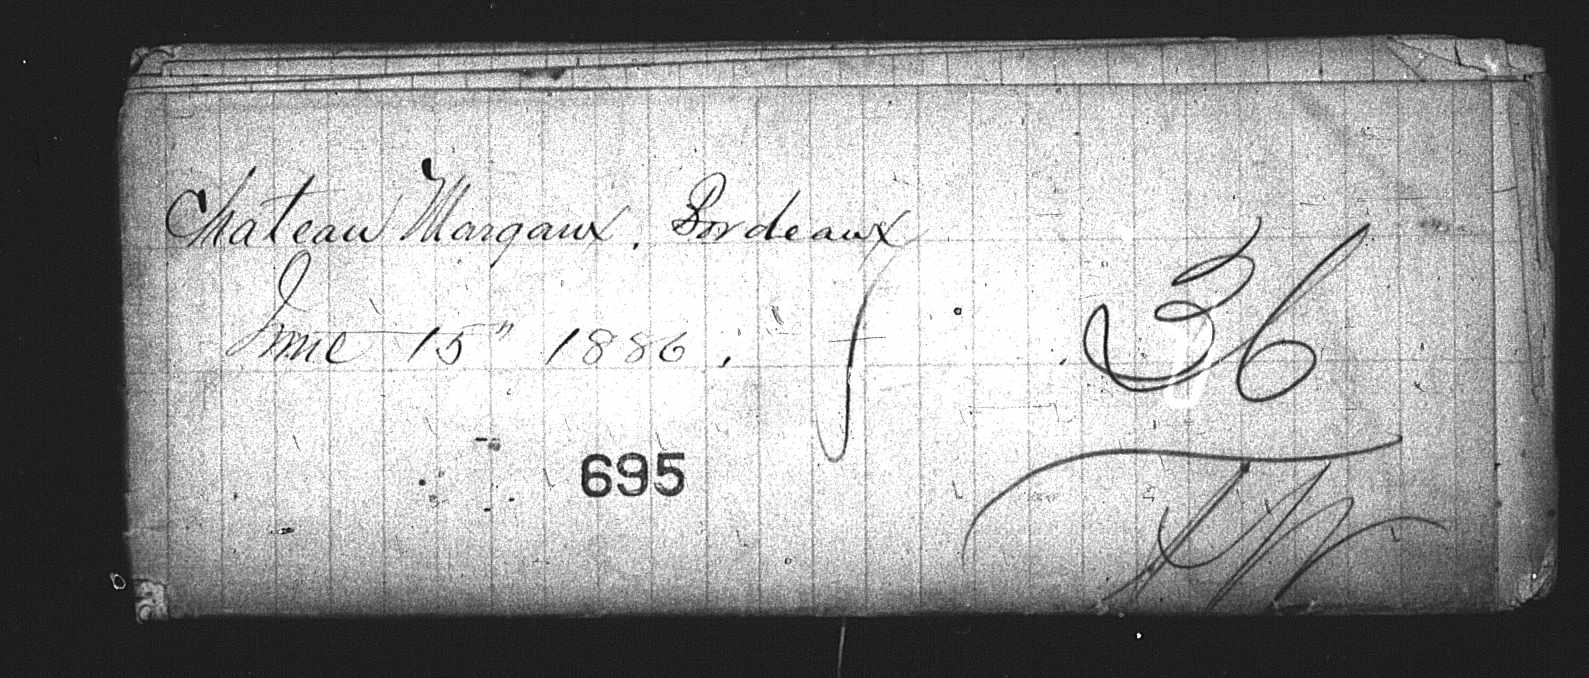 Chateau Margaux. Bordeaux
June 15" 1886.
36
695